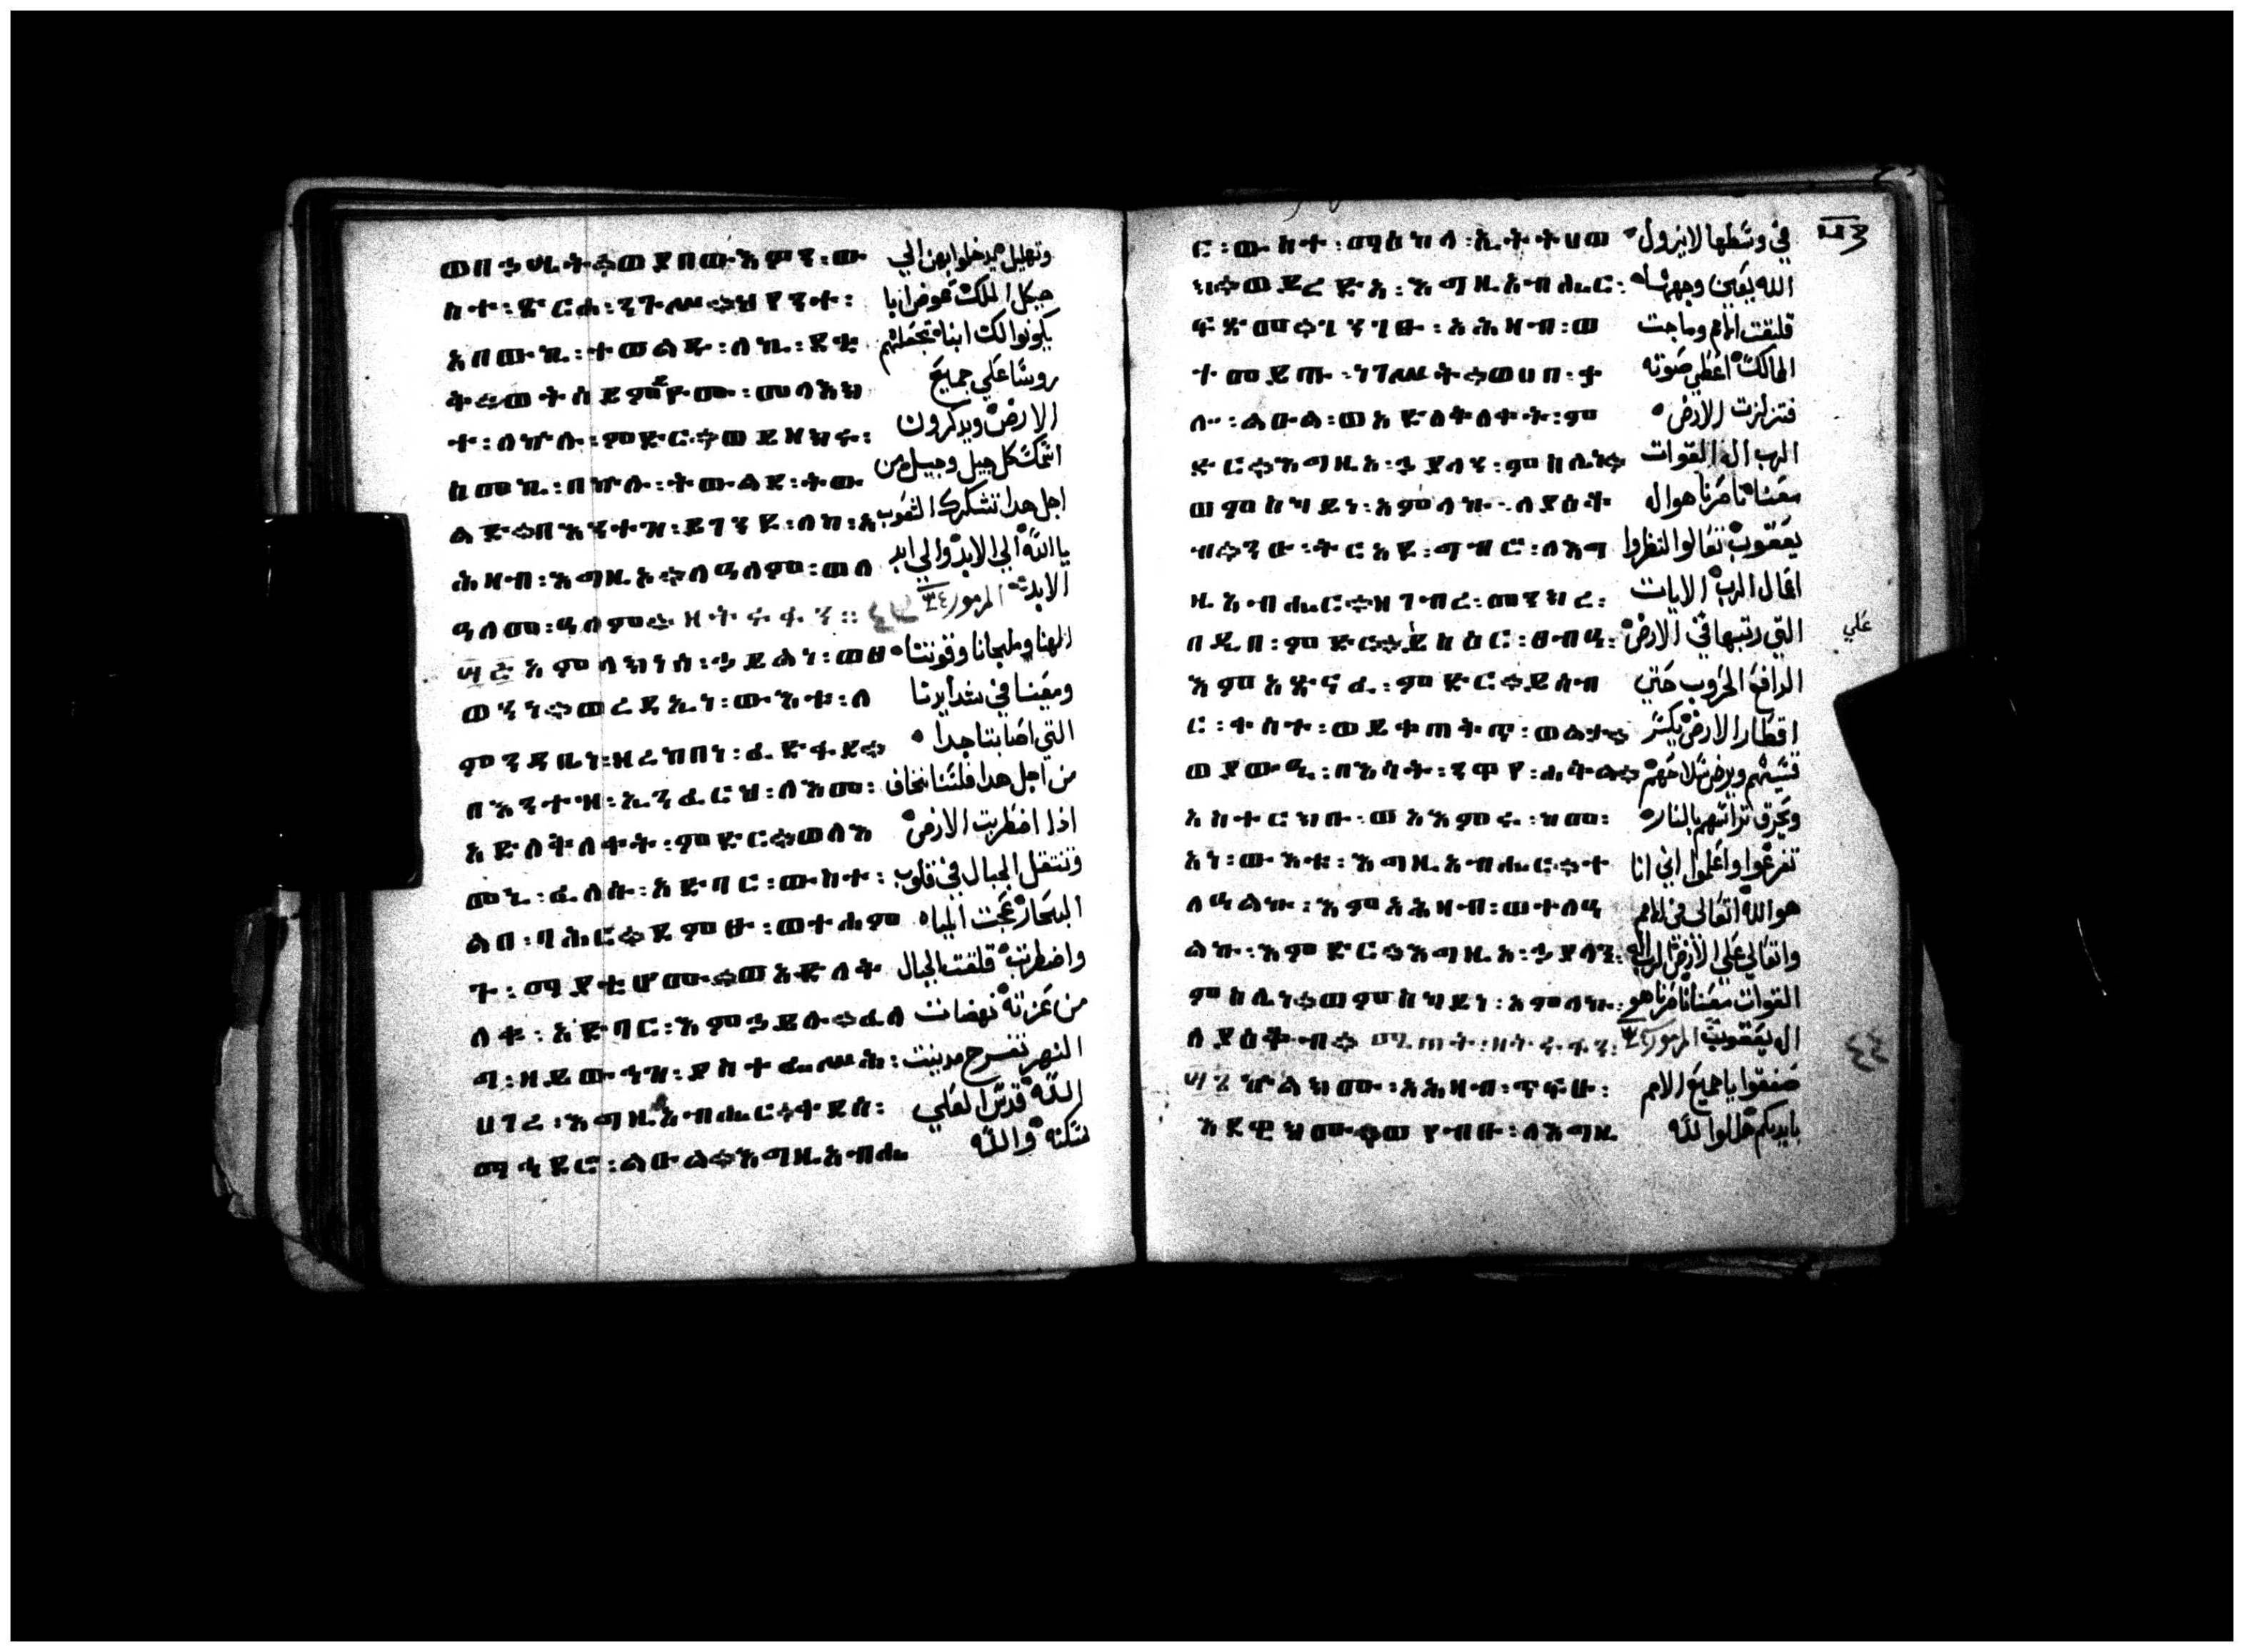 ወበኃሤት፨ወያበውእዎን፡ው وتهليل يدخلوا بهن الي
ስተ፡ጽርሐ፡ንጉሥ፨ህየንተ፡ هيكل الملك عوض ابا
አበውኪ፡ተወልዱ፡ለኪ፡ደቂ يكونوا لك ابنا تجعلهم
ቅ፨ወትሰይምዮሙ፡መላእክ روسا علي جميع
ተ፡ለኵሉ፡ምድር፨ወይዘክሩ፡ الارض ويدكرون
ስመኪ፡በኵሉ፡ትውልደ፡ትው اسمك كل جيل وجيل من
ልድ፨በእንተዝ፡ይገንዩ፡ለከ፡አ اجل هدا تشكرك الشعوب
ሕዛብ፡እግዚኦ፨ለዓለም፡ወለ يا الله الي الابد والي ابد
ዓለመ፡ዓለም፨ዘትፍፋን፡፡ الابد المزمور
፵፭ አምላክነሰ፡ኃይልነ፡ወፀ الهنا وملجانا وقوتنا
ወንነ፨ወረዳኢነ፡ውእቱ፡ለ ومعيننا في شدايدنا
ምንዳቤነ፡ዘረከበነ፡ፈድፋደ፨ التي اصابتنا جدا
በእንተዝ፡ኢንፈርህ፡ለእመ፡ من اجل هدا فلسنا نخاف
አድለቅለቀት፡ምድር፨ወለእ اذا اضطربت الارض
መኒ፡ፈለሱ፡አድባር፡ውስተ፡ وتنتقل الجبال في قلوب
ልበ፡ባሕር፨ደምፁ፡ወተሐም البحار عجت المياه
ጉ፡ማያቲሆሙ፨ወአድለቅ واضطربت قلقت الجبال
ለቁ፡አድባር፡እምኃይሉ፨ፈለ من عزته نهضات
ግ፡ዘይውኅዝ፡ያስተፌሥሕ፡ النهر تفرح مدينت
ሀገረ፡እግዚአብሔር፨ቀደሰ፡ الله قدس العلي
ማኅደሮ፡ልዑል፨እግዚአብሔ مسكنه والله
ር፡ውስተ፡ማእከላ፡ኢትትሀወ في وسطها لا يزول
ክ፨ወይረድኣ፡እግዚአብሔር፡ الله يعين وجهها
ፍጽመ፨ገንገፁ፡አሕዛብ፡ወ قلقت الامم وماجت
ተመይጡ፡ነገሥት፨ወሀበ፡ቃ الممالك اعطي صوته
ሎ፡ልዑል፡ወአድለቅለቀት፡ም فتزلزلت الارض
ድር፨እግዚአ፡ኃያላን፡ምስሌነ፨ الرب اله القوات
ወምስካይነ፡አምላኩ፡ለያዕቆ معنا ناصرنا هو اله
ብ፨ንዑ፡ትርአዩ፡ግብሮ፡ለእግ يعقوب تعالوا انظروا
ዚአብሔር፨ዘገብረ፡መንክረ፡ افعال الرب الايات
በዲበ፡ምድር፨ይስዕር፡ፀብዓ፡ التي رتبها في الارض علي
እምአጽናፈ፡ምድር፨ይሰብ الدافع الحروب حتي
ር፡ቀስተ፡ወይቀጠቅጥ፡ወልታ፨ اقطار الارض يكسر
ወያውዒ፡በእሳት፡ንዋየ፡ሐቅል፨ قسيهم ويرض سلاحهم
አስተርክቡ፡ወአእምሩ፡ከመ፡ ويحرق تراسهم بالنار
አነ፡ውእቱ፡እግዚአብሔር፨ተ تفرغوا واعلموا اني انا
ለዓልኩ፡እምአሕዛብ፡ወተለዓ هو الله اتعالي في الامم
ልኩ፡እምድር፨እግዚአ፡ኃያላን፡ واتعالي علي الارض الرب اله
ምስሌነ፨ወምስካይነ፡አምላኩ፡ القوات معنا ناصرنا هو
ለያዕቆብ፨ ال يعقوب المزمور
፵፮ ኵልክሙ፡አሕዛብ፡ጥፍሁ፡ صفقوا يا جميع الامم
እደዊክሙ፨ወየብቡ፡ለእግዚ بايديكم هللوا لله